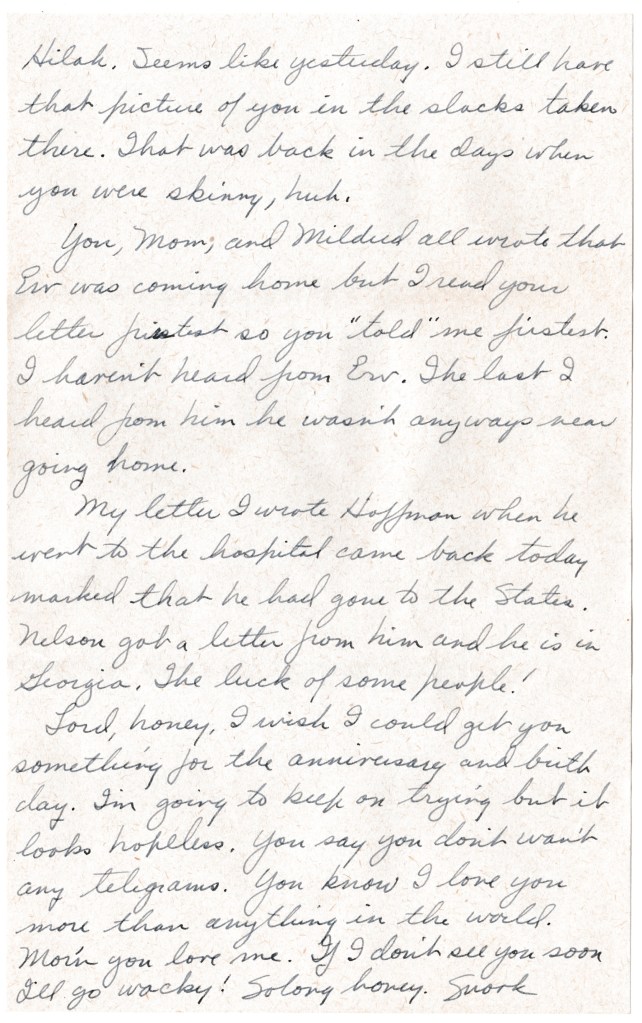 Hilah. Seems like yesterday. I still have
that picture of you in the slacks taken
there. That was back in the days when
you were skinny, huh.
You, Mom, and Mildred all wrote that
Erv was coming home but I read your
letter firstest so you "told" me firstest.
I haven't heard from Erv. The last I
heard from him he wasn't anyways near
going home.
My letter I wrote Hoffman when he
went to the hospital came back today
marked that he had gone to the States.
Nelson got a letter from him and he is in
Georgia. The luck of some people!
Lord, honey, I wish I could get you
something for the anniversary and birth
day. I'm going to keep on trying but it
looks hopeless. You say you don't want
any telegrams. You know I love you
more than anything in the world.
Mor'n you love me. If I don't see you soon
I'll go wacky! Solong honey. Snork